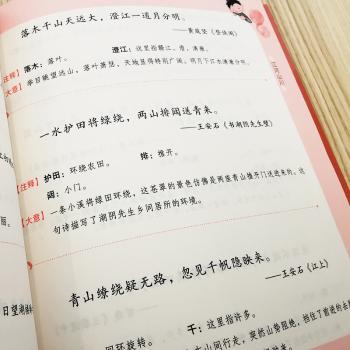 落木千山天远大，澄江一道月分明。
——黄庭坚《登快阁》
【注释】 落木：落叶。 澄江：这里指赣江。澄，清澈。
【大意】 举目眺望远山，落叶萧瑟，天地显得特别广阔。明月下江水清澈分明。
一水护田将绿绕，两山排闼送青来。
——王安石《书湖阴先生壁》
【注释】 护田：环绕农田。 排：推开。
闼：小门。
【大意】 一条小溪将绿田环绕，这苍翠的景色仿佛是两座青山推开门送进来的。这
句诗描写了湖阴先生乡间居所的环境。
青山缭绕疑无路，忽见千帆隐映来。
——王安石《江上》
回环旋转。 千：这里指许多。
日望湖